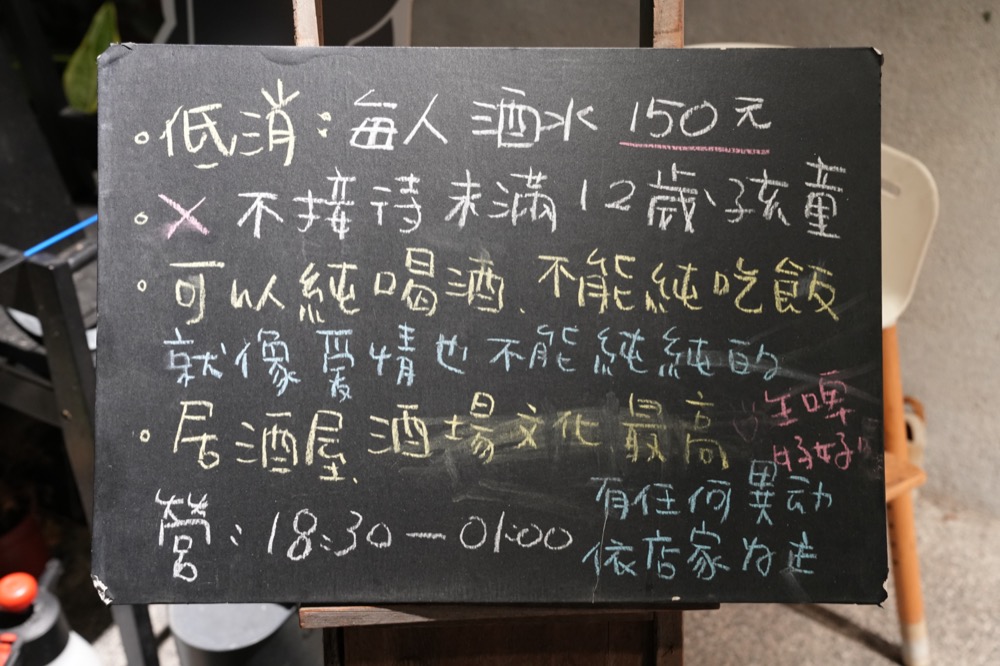 。低消：每人 酒水 150元
。X 不接待未滿12歲小孩童
。可以純喝酒、不能純吃飯
就像愛情也不能純純的
。居酒屋、酒場文化最高
生啤
好好
營：18:30－01:00
有任何異动
依店家为主